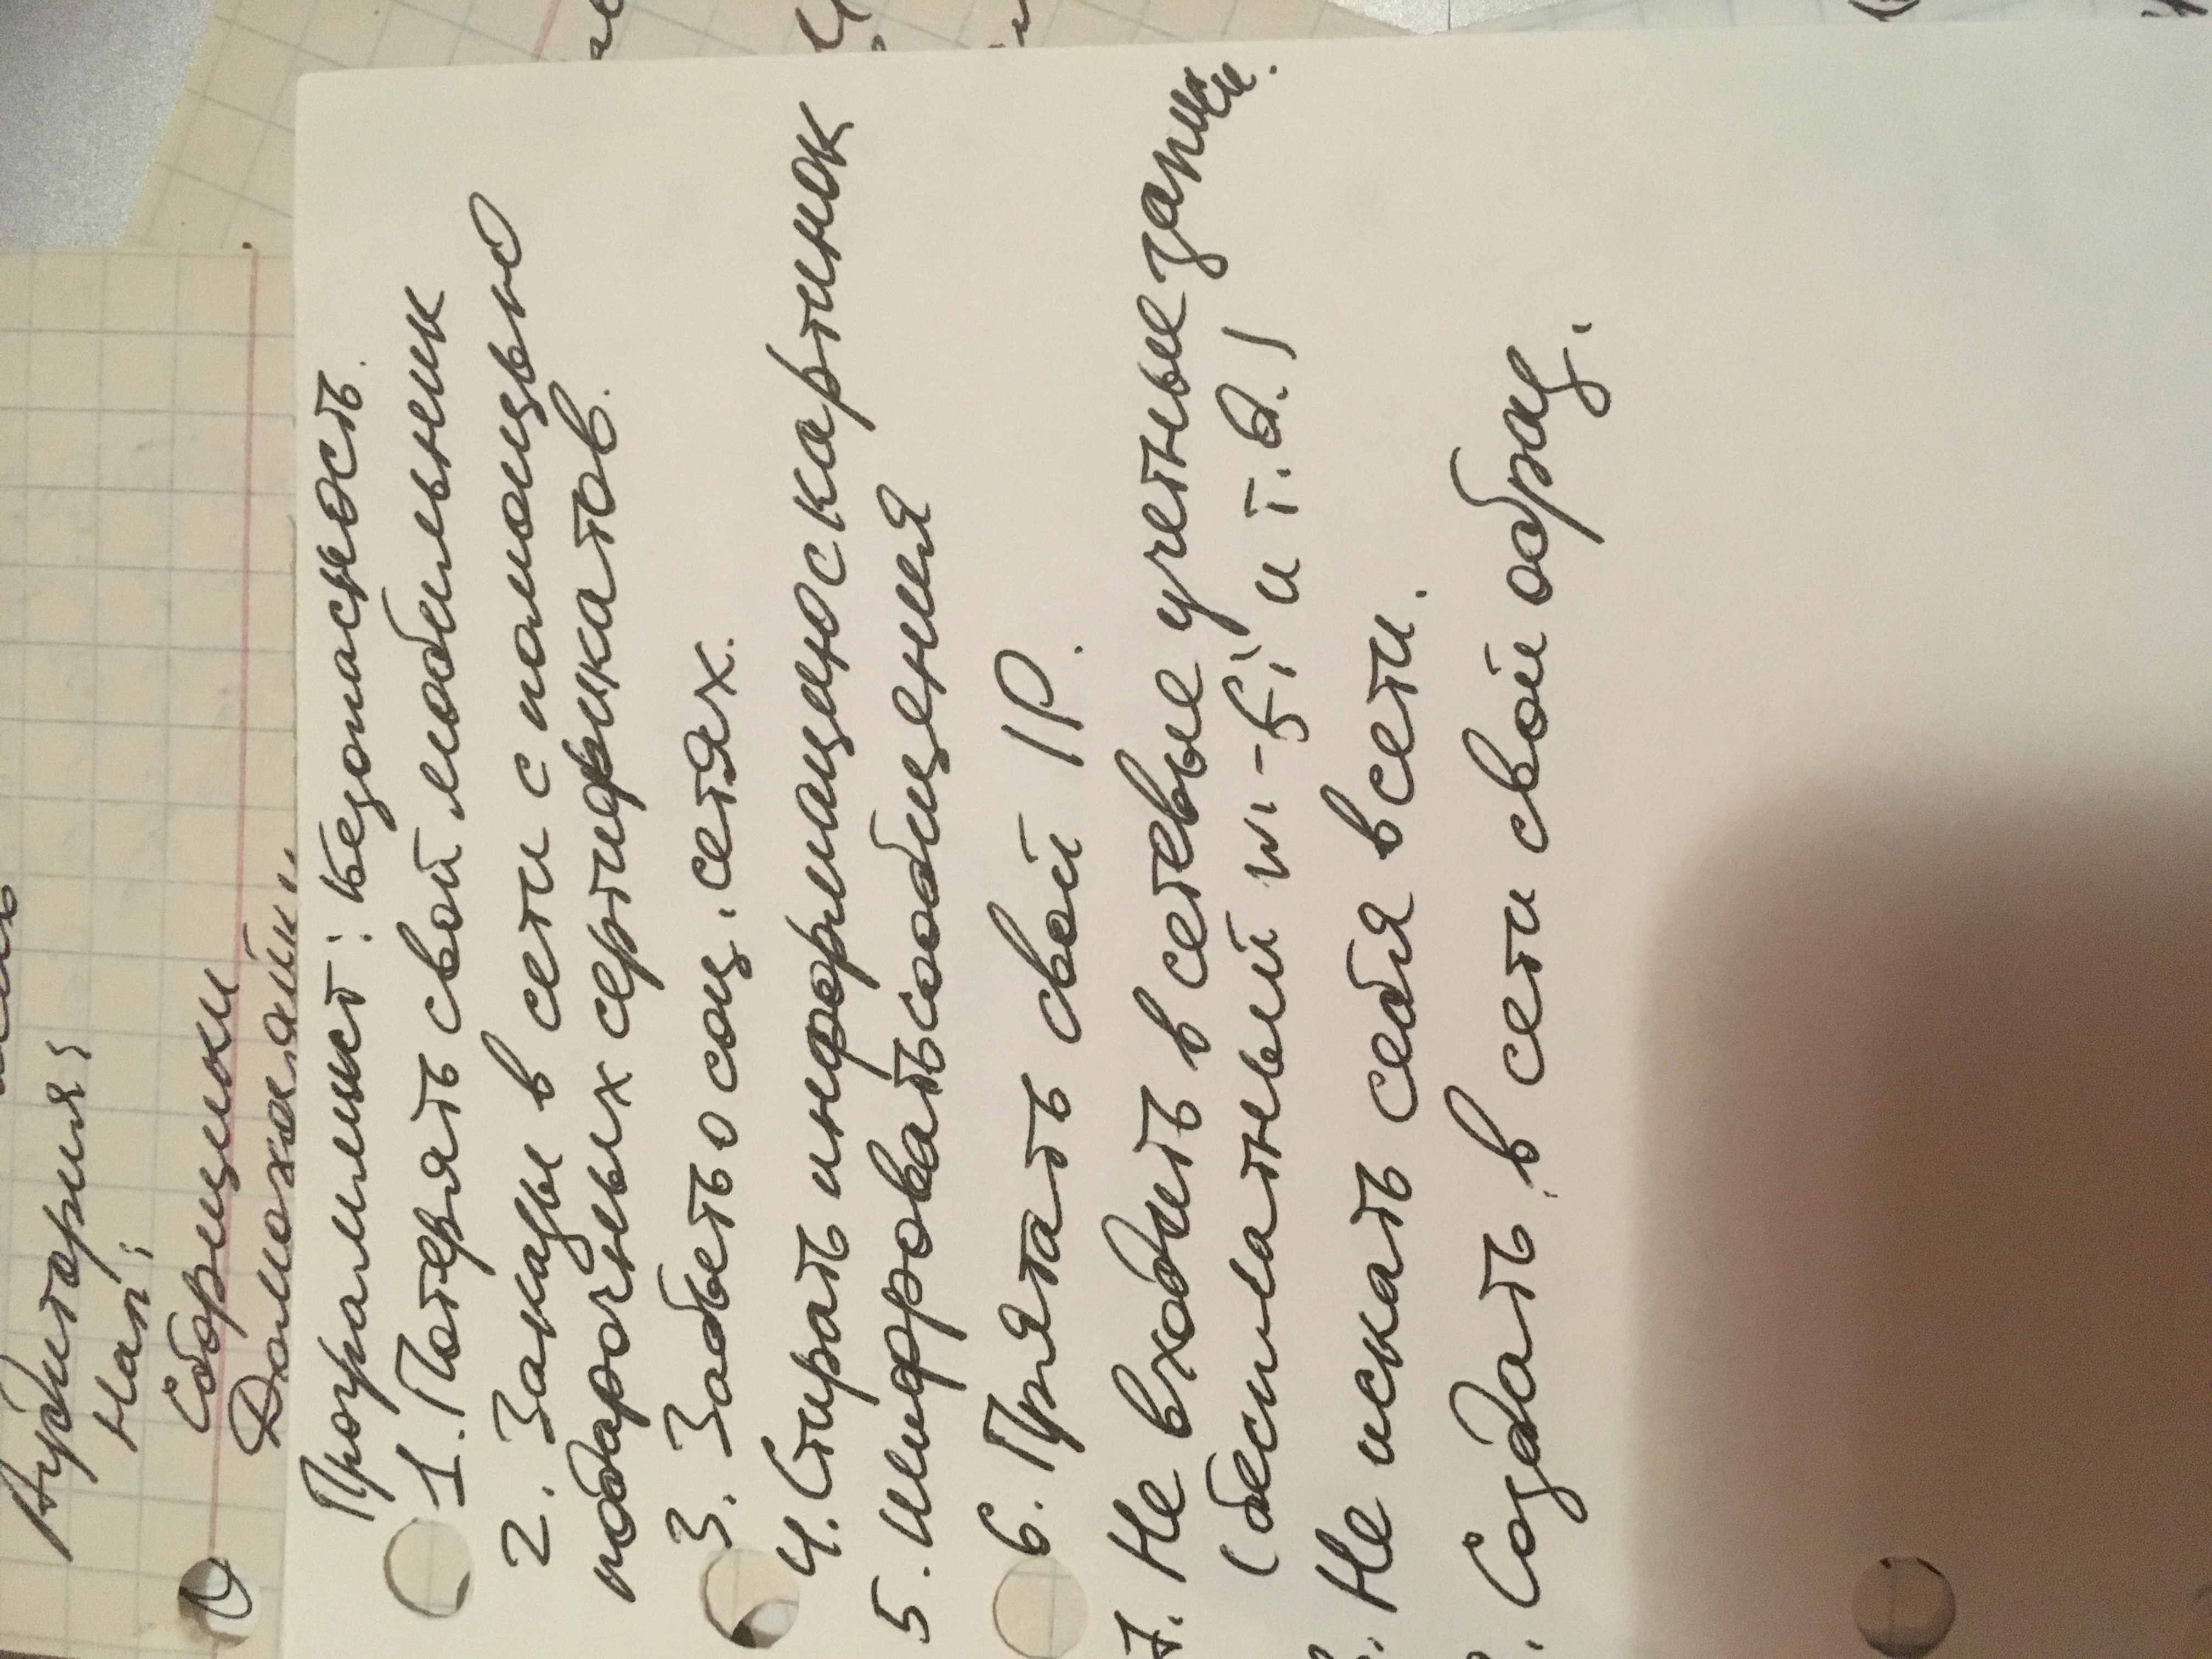 Аудитория:
Нап:
Сборщики
Домохозяйки
Программист: Безопасность.
1. Потерять свой мобильник
2. Заказы в сети с помощью
подарочных сертификатов.
3. Забыть о соц. сетях.
4. Стирать информацию с картинок
5. Шифровать сообщения
6. Прятать свой IP.
7. Не входить в сетевые учетные записи.
(бесплатный wi-fi и т.д.)
. Не искать себя в сети.
. Создать в сети свой образ.